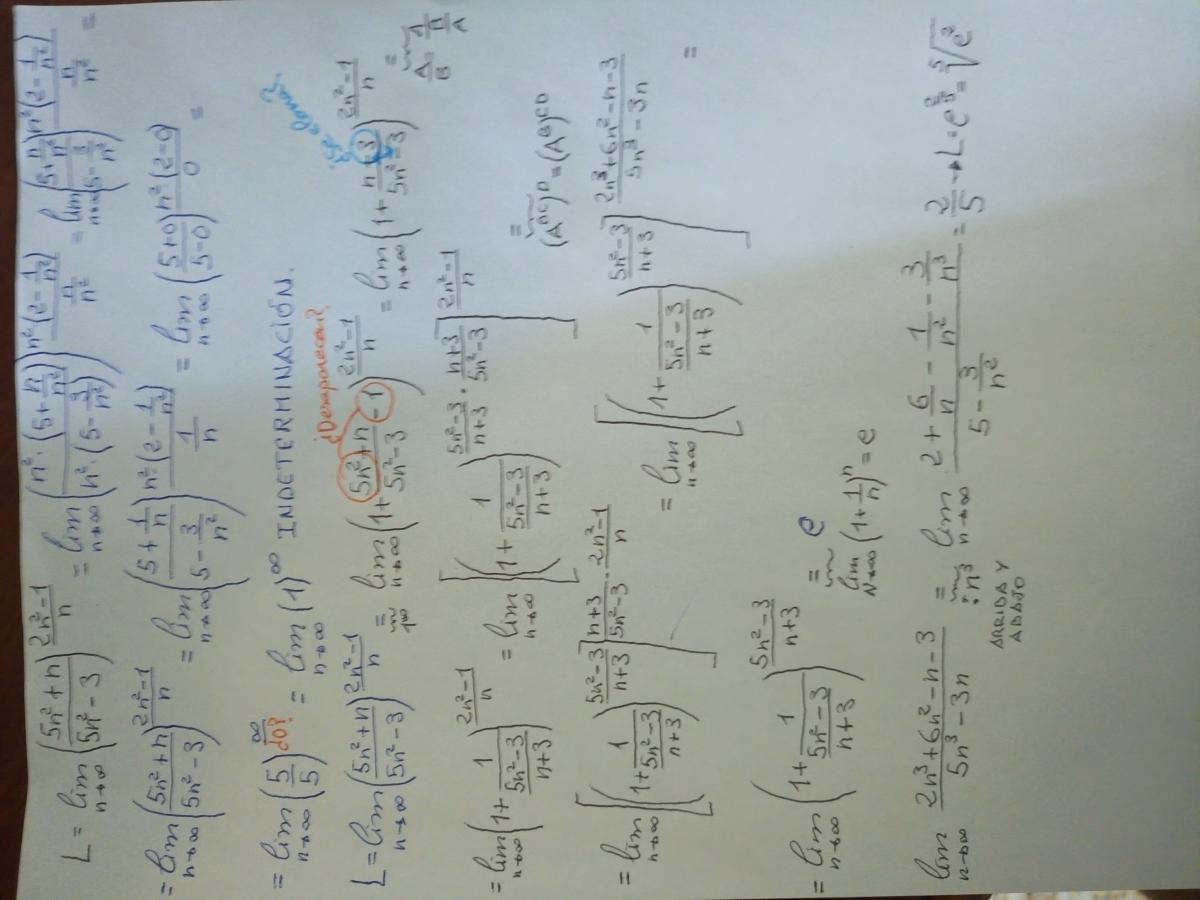 L = lim n→∞ ((5n²+n)/(5n²-3))^((2n²-1)/n) = lim n→∞ ((n²·(5+n/n²))/(n²·(5-3/n²)))^((n²(2-1/n²))/(n/n²)) = lim n→∞ ((5+n/n²)/(5-3/n²))^((n²(2-1/n²))/(n/n²)) =
= lim n→∞ ((5n²+n)/(5n²-3))^((2n²-1)/n) = lim n→∞ ((5+1/n)/(5-3/n²))^((n²(2-1/n²))/(1/n)) = lim n→∞ ((5+0)/(5-0))^((n²(2-0))/0) =
= lim n→∞ (5/5)^(∞/¿0?) = lim n→∞ (1)^∞ INDETERMINACIÓN.
¿Desaparecen?
L = lim n→∞ ((5n²+n)/(5n²-3))^((2n²-1)/n) = 1^∞ lim n→∞ (1+(5n²+n)/(5n²-3)-1)^((2n²-1)/n) = lim n→∞ (1+(n+3)/(5n²-3))^((2n²-1)/n) = A/B = 1/(B/A)
= lim n→∞ (1+1/((5n²-3)/(n+3)))^((2n²-1)/n) = lim n→∞ [(1+1/((5n²-3)/(n+3)))^((5n²-3)/(n+3)·(n+3)/(5n²-3))]^((2n²-1)/n) = (A^BC)^D = (A^B)^CD
= lim n→∞ [(1+1/((5n²-3)/(n+3)))^((5n²-3)/(n+3))]^((n+3)/(5n²-3)·(2n²-1)/n) = lim n→∞ [(1+1/((5n²-3)/(n+3)))^((5n²-3)/(n+3))]^((2n³+6n²-n-3)/(5n³-3n)) =
= lim n→∞ (1+1/((5n²-3)/(n+3)))^((5n²-3)/(n+3)) = e
lim N→∞ (1+1/n)^n = e
lim n→∞ (2n³+6n²-n-3)/(5n³-3n) = :n³ lim n→∞ (2+6/n-1/n²-3/n³)/(5-3/n²) = 2/5 → L = e^(2/5) = ⁵√e²
ARRIBA Y
ABAJO